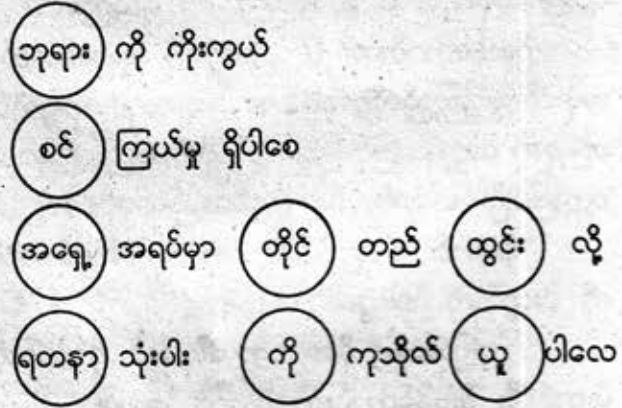 ဘုရား ကို ကိုးကွယ်
စင် ကြယ်မှု ရှိပါစေ
အရှေ့ အရပ်မှာ တိုင် တည် ထွင်း လို့
ရတနာ သုံးပါး ကို ကုသိုလ် ယူ ပါလေ